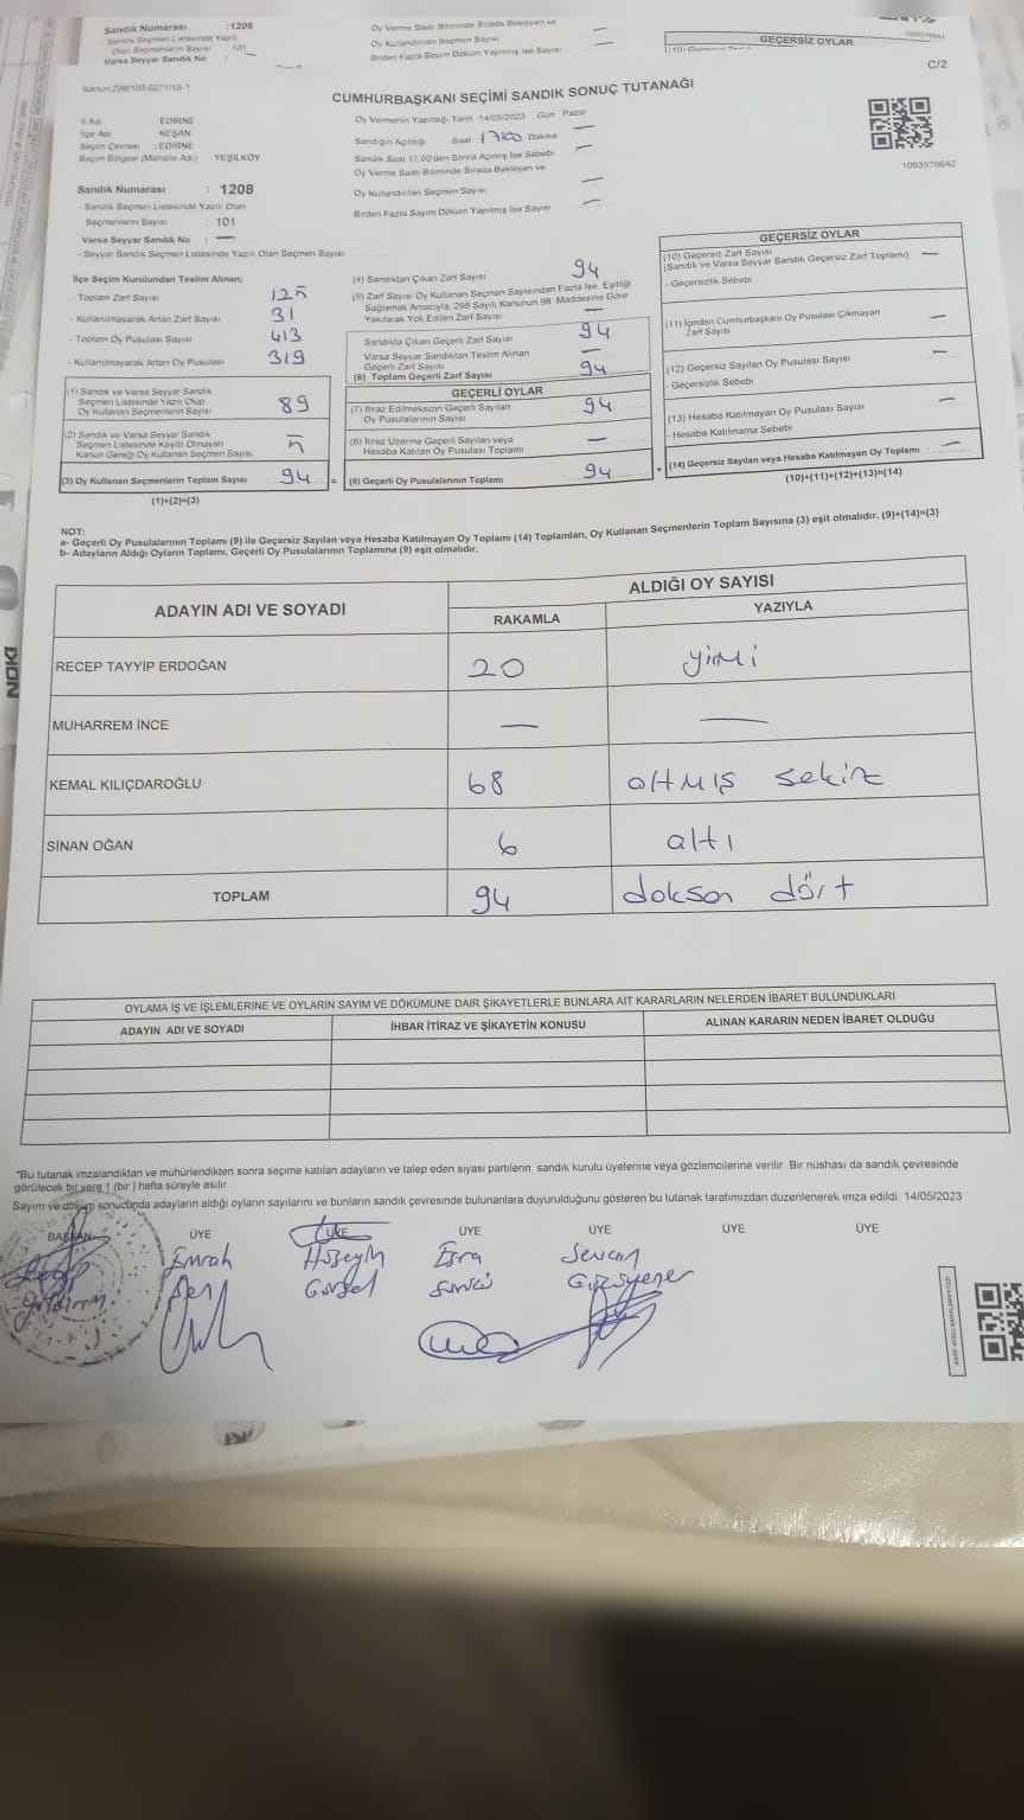 Sandık Numarası : 1208
Sandık Seçmen Listesinde Yazılı
Olan Seçmenlerin Sayısı 101
Varsa Seyyar Sandık No : —
Oy Verme Saati Bitiminde Sırada Bekleyen ve
Oy Kullandırılan Seçmen Sayısı —
Birden Fazla Sayım Döküm Yapılmış İse Sayısı —
GEÇERSİZ OYLAR
C/2
CUMHURBAŞKANI SEÇİMİ SANDIK SONUÇ TUTANAĞI
İl Adı : EDİRNE
İlçe Adı : KEŞAN
Seçim Çevresi : EDİRNE
Seçim Bölgesi (Mahalle Adı) : YEŞİLKÖY
Oy Vermenin Yapıldığı Tarih : 14/05/2023 Gün : Pazar
Sandığın Açıldığı Saat : 17:00 Dakika —
Sandık Saat 17.00'den Sonra Açılmış İse Sebebi —
Oy Verme Saati Bitiminde Sırada Bekleyen ve
Oy Kullandırılan Seçmen Sayısı —
Birden Fazla Sayım Döküm Yapılmış İse Sayısı —
1093576642
Sandık Numarası : 1208
- Sandık Seçmen Listesinde Yazılı Olan
Seçmenlerin Sayısı : 101
Varsa Seyyar Sandık No : —
- Seyyar Sandık Seçmen Listesinde Yazılı Olan Seçmen Sayısı
İlçe Seçim Kurulundan Teslim Alınan;
- Toplam Zarf Sayısı 125
- Kullanılmayarak Artan Zarf Sayısı 31
- Toplam Oy Pusulası Sayısı 413
- Kullanılmayarak Artan Oy Pusulası 319
(1) Sandık ve Varsa Seyyar Sandık
Seçmen Listesinde Yazılı Olup
Oy Kullanan Seçmenlerin Sayısı 89
(2) Sandık ve Varsa Seyyar Sandık
Seçmen Listesinde Kayıtlı Olmayan
Kanun Gereği Oy Kullanan Seçmen Sayısı 5
(3) Oy Kullanan Seçmenlerin Toplam Sayısı 94
(1)+(2)=(3)
(4) Sandıktan Çıkan Zarf Sayısı 94
(5) Zarf Sayısı Oy Kullanan Seçmen Sayısından Fazla İse, Eşitliği
Sağlamak Amacıyla, 298 Sayılı Kanunun 98. Maddesine Göre
Yakılarak Yok Edilen Zarf Sayısı —
Sandıkta Çıkan Geçerli Zarf Sayısı 94
Varsa Seyyar Sandıktan Teslim Alınan
Geçerli Zarf Sayısı —
(6) Toplam Geçerli Zarf Sayısı 94
GEÇERLİ OYLAR
(7) İtiraz Edilmeksizin Geçerli Sayılan
Oy Pusulalarının Sayısı 94
(8) İtiraz Üzerine Geçerli Sayılan veya
Hesaba Katılan Oy Pusulası Toplamı —
= (9) Geçerli Oy Pusulalarının Toplamı 94
GEÇERSİZ OYLAR
(10) Geçersiz Zarf Sayısı
(Sandık ve Varsa Seyyar Sandık Geçersiz Zarf Toplamı) —
- Geçersizlik Sebebi
(11) İçinden Cumhurbaşkanı Oy Pusulası Çıkmayan
Zarf Sayısı —
(12) Geçersiz Sayılan Oy Pusulası Sayısı —
- Geçersizlik Sebebi
(13) Hesaba Katılmayan Oy Pusulası Sayısı —
- Hesaba Katılmama Sebebi
+ (14) Geçersiz Sayılan veya Hesaba Katılmayan Oy Toplamı —
(10)+(11)+(12)+(13)=(14)
NOT:
a- Geçerli Oy Pusulalarının Toplamı (9) ile Geçersiz Sayılan veya Hesaba Katılmayan Oy Toplamı (14) Toplamları, Oy Kullanan Seçmenlerin Toplam Sayısına (3) eşit olmalıdır. (9)+(14)=(3)
b- Adayların Aldığı Oyların Toplamı, Geçerli Oy Pusulalarının Toplamına (9) eşit olmalıdır.
ADAYIN ADI VE SOYADI
ALDIĞI OY SAYISI
RAKAMLA YAZIYLA
RECEP TAYYİP ERDOĞAN 20 yirmi
MUHARREM İNCE — —
KEMAL KILIÇDAROĞLU 68 altmış sekiz
SİNAN OĞAN 6 altı
TOPLAM 94 doksan dört
OYLAMA İŞ VE İŞLEMLERİNE VE OYLARIN SAYIM VE DÖKÜMÜNE DAİR ŞİKAYETLERLE BUNLARA AİT KARARLARIN NELERDEN İBARET BULUNDUKLARI
ADAYIN ADI VE SOYADI İHBAR İTİRAZ VE ŞİKAYETİN KONUSU ALINAN KARARIN NEDEN İBARET OLDUĞU
*Bu tutanak imzalandıktan ve mühürlendikten sonra seçime katılan adayların ve talep eden siyasi partilerin sandık kurulu üyelerine veya gözlemcilerine verilir. Bir nüshası da sandık çevresinde
görülecek bir yere 1 (bir ) hafta süreyle asılır.
Sayım ve döküm sonucunda adayların aldığı oyların sayılarını ve bunların sandık çevresinde bulunanlara duyurulduğunu gösteren bu tutanak tarafımızdan düzenlenerek imza edildi. 14/05/2023
BAŞKAN ÜYE ÜYE ÜYE ÜYE ÜYE ÜYE
Emrah Hüseyin Esra Sevcan
Gürsel